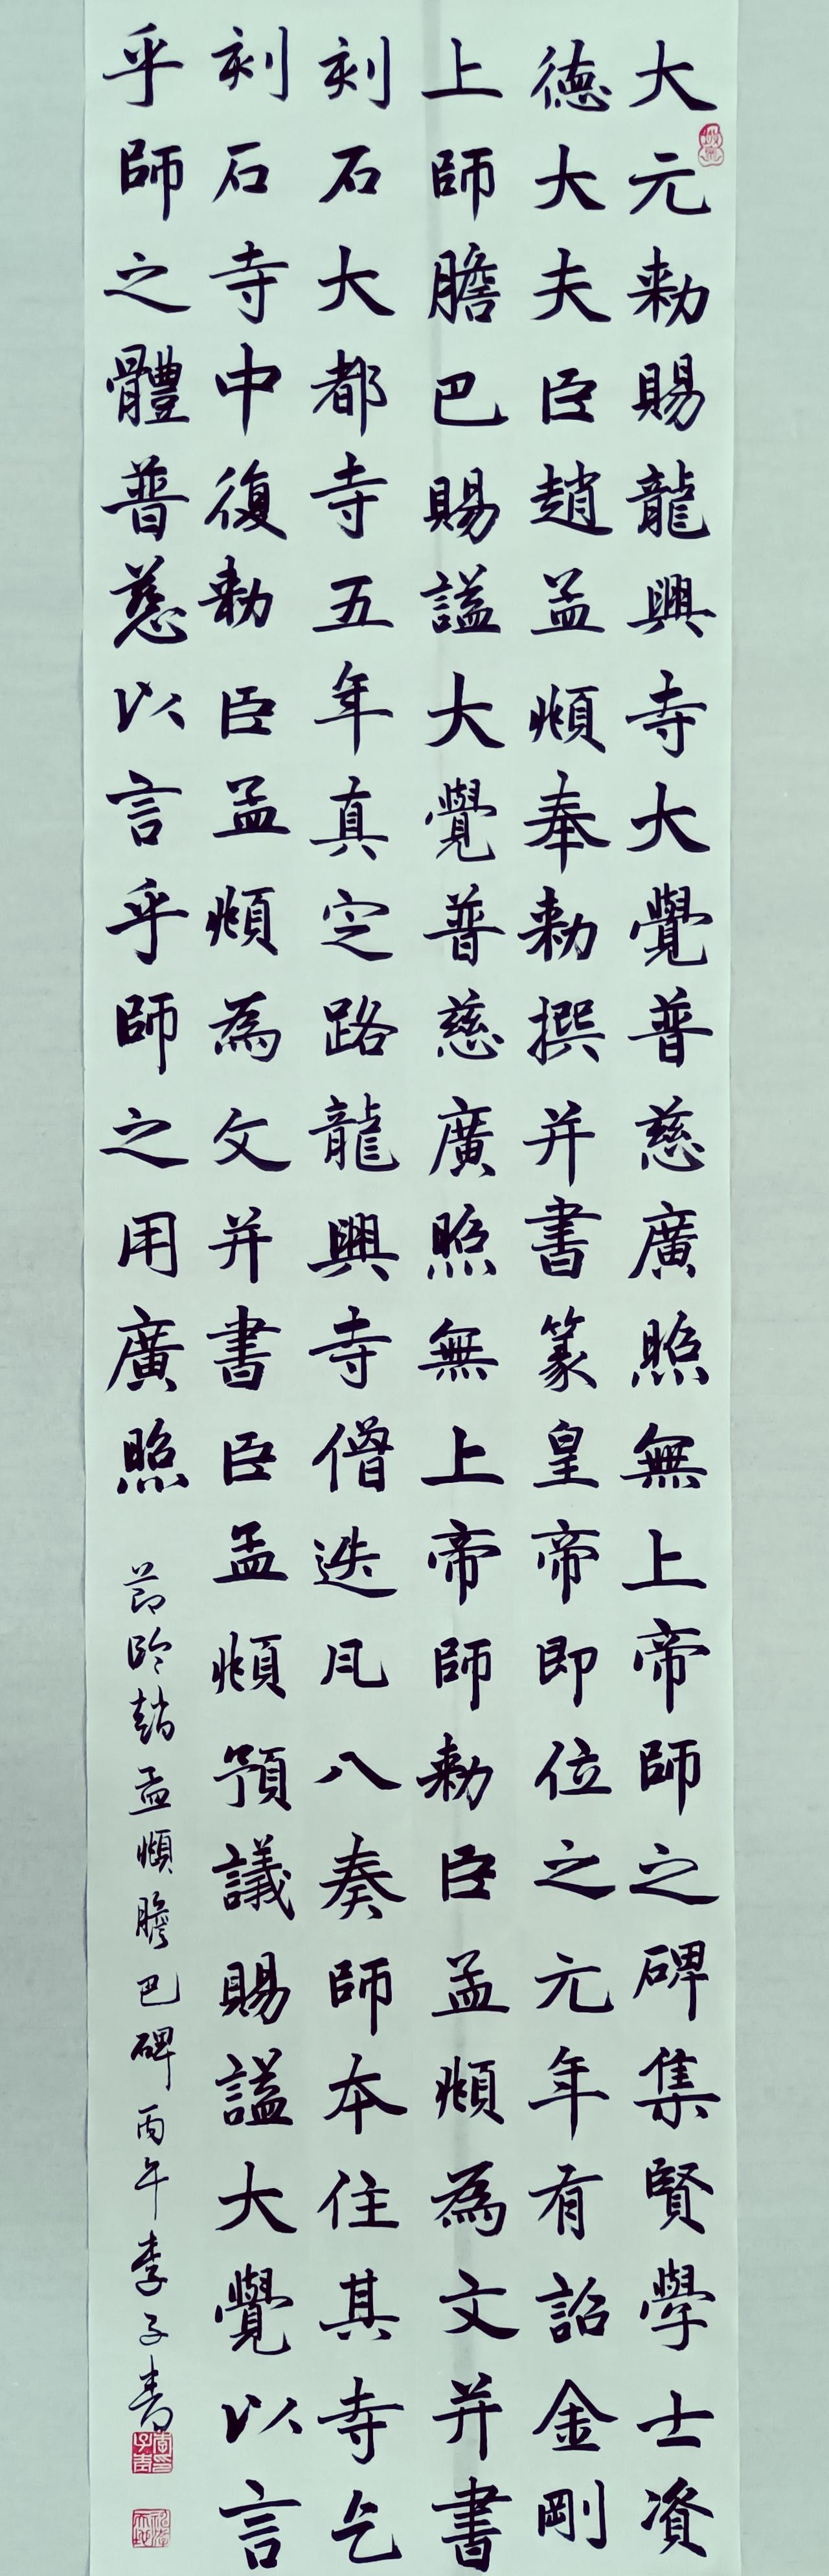 大元勅賜龍興寺大覺普慈廣照無上帝師之碑集賢學士資
德大夫臣趙孟頫奉勅撰并書篆皇帝即位之元年有詔金剛
上師膽巴賜謚大覺普慈廣照無上帝師勅臣孟頫為文并書
刻石大都寺五年真定路龍興寺僧迭凡八奏師本住其寺乞
刻石寺中復勅臣孟頫為文并書臣孟頫預議賜謚大覺以言
乎師之體普慈以言乎師之用廣照
節臨趙孟頫膽巴碑丙午李子青